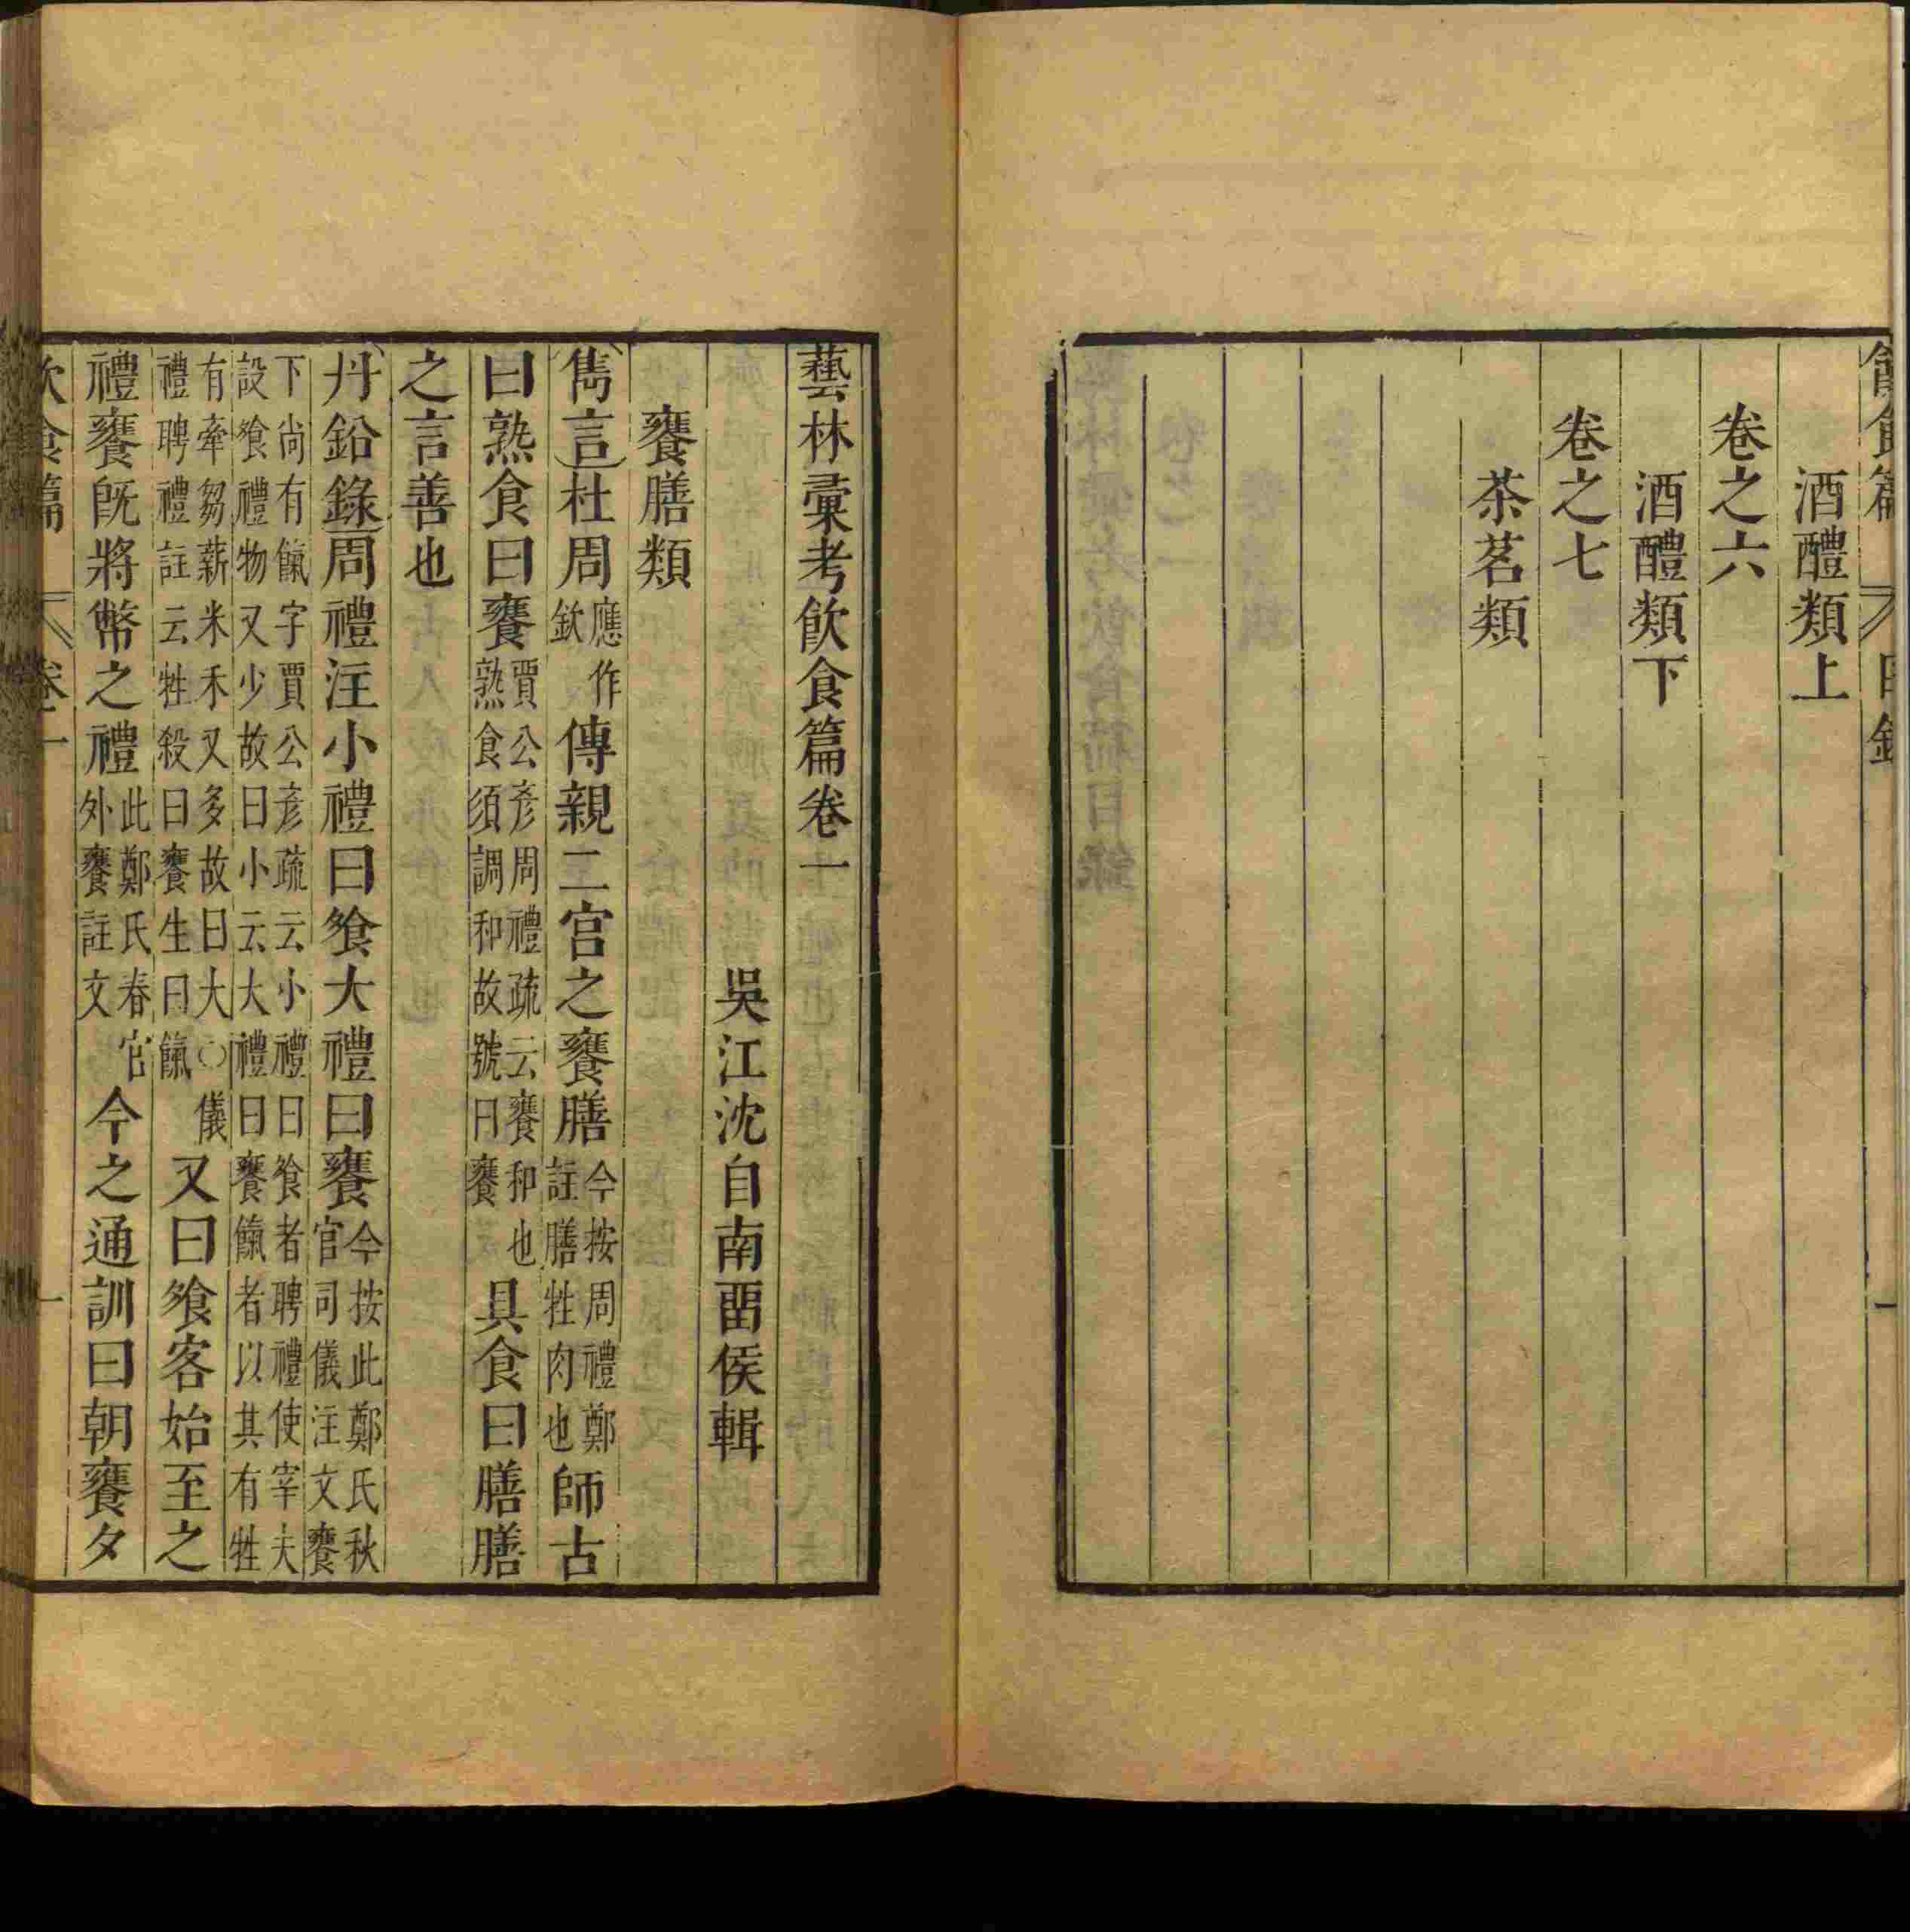 飲食篇　目錄　一
酒醴類上
卷之六
酒醴類下
卷之七
茶茗類
藝林彙考飲食篇卷一
吳江沈自南畱侯輯
饔膳類
雋言杜周應作欽傳親二宮之饔膳今按周禮鄭註膳牲肉也師古
曰熟食曰饔賈公彥周禮疏云饔和也熟食須調和故號曰饔具食曰膳膳
之言善也
丹鉛錄周禮注小禮曰飧大禮曰饔今按此鄭氏秋官司儀注文饔
下尚有餼字賈公彥疏云小禮曰飧者聘禮使宰夫設飧禮物又少故曰小云大禮曰饔餼者以其有牲
有牽芻薪米禾又多故曰大〇儀禮聘禮註云牲殺曰饔生曰餼又曰飧客始至之
禮饔既將幣之禮此鄭氏春官外饔註文今之通訓曰朝饔夕
飲食篇　卷一　一